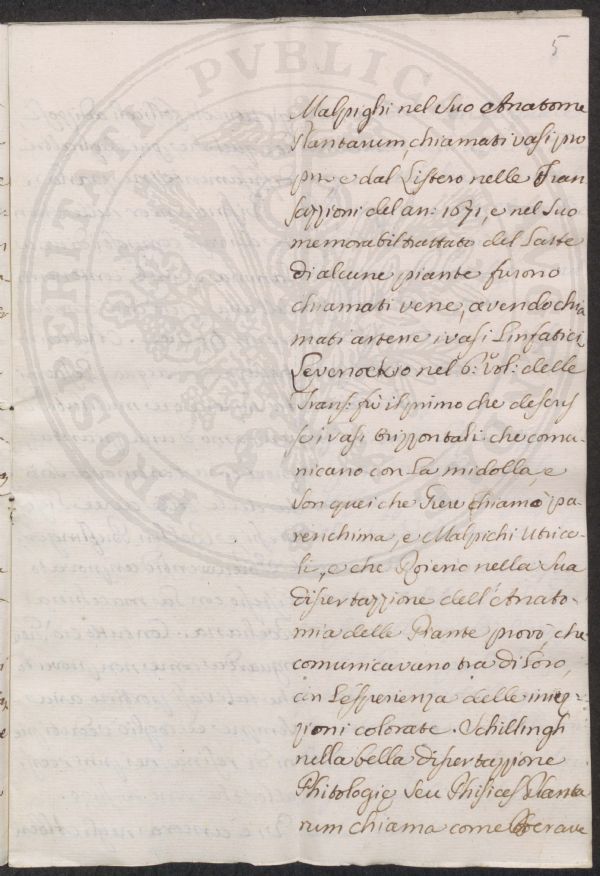 5
Malpighi nel suo Anatome
Plantarum, chiamati vasi pro
prii e dal Listero nelle Tran
sazzioni del an: 1671, e nel suo
memorabil trattato del Latte
di alcune piante furono
chiamati vene, avendo chia
mati artene i vasi Linfatici
Levenoekio nel 6: vol: delle
Trans: fù il primo che descris
se i vasi orizzontali che comu-
nicano con La midolla, e
son quei che Greu chiamò pa-
renchima, e Malpichi Utrico-
li, e che Roierio nella sua
dissertazzione dell'Anato-
mia delle Piante provò, che
comunicavano tra di loro,
con L'esperienza delle iniez-
zioni colorate. Schillingh
nella bella dissertazzione
Phitologie seu Phisices Planta
rum chiama come Boerave
PROSPERITATI PVBLICAE